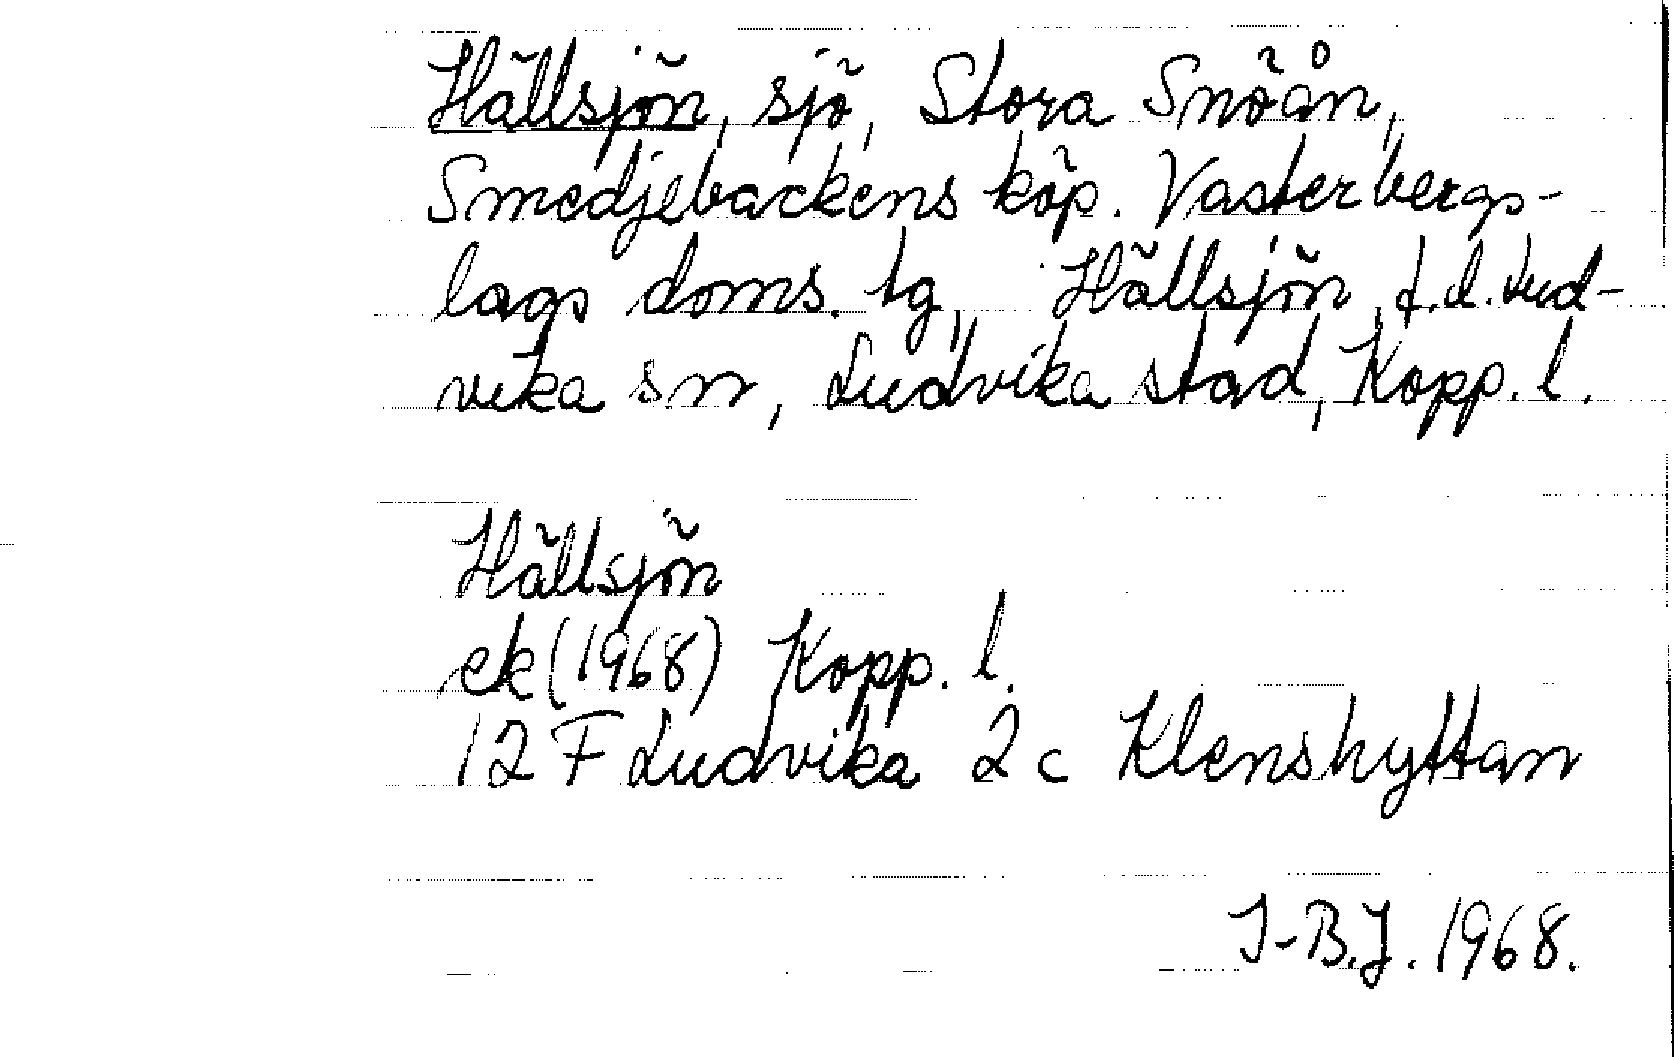 Hällsjön, sjö, Stora Snöån,
Smedjebackens köp. Västerbergs-
lags doms. tg, Hällsjön, f.d. Lud-
vika sn, Ludvika stad, Kopp. l.
Hällsjön
ek (1968) Kopp. l.
12 F Ludvika 2 c Klenshyttan
I-B.J. 1968.